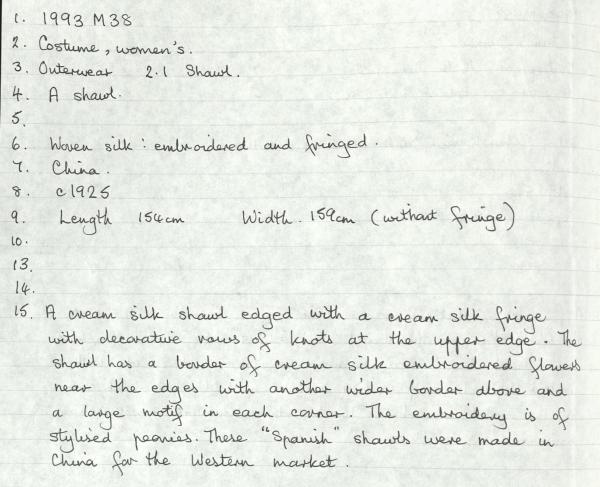 1. 1993 M38
2. Costume, women's.
3. Outerwear 2.1 Shawl.
4. A shawl.
5.
6. Woven silk : embroidered and fringed.
7. China.
8. c1925
9. Length 154cm Width. 159cm (without fringe)
10.
13.
14.
15. A cream silk shawl edged with a cream silk fringe
with decorative rows of knots at the upper edge. The
shawl has a border of cream silk embroidered flowers
near the edges with another wider border above and
a large motif in each corner. The embroidery is of
stylised peonies. These "Spanish" shawls were made in
China for the Western market.